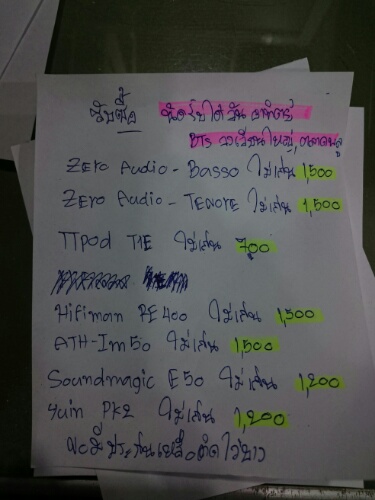 รับซื้อ นัดรับได้วันอาทิตย์
BTS วงเวียนใหญ่,
Zero Audio - Basso ไม่เกิน 1,500
Zero Audio - TENORE ไม่เกิน 1,500
TTpod T1E ไม่เกิน 700
Hifiman RE400 ไม่เกิน 1,500
ATH-Im50 ไม่เกิน 1,500
Soundmagic E50 ไม่เกิน 1,200
Yuin PK2 ไม่เกิน 1,200
ขอมีประกันเหลือ